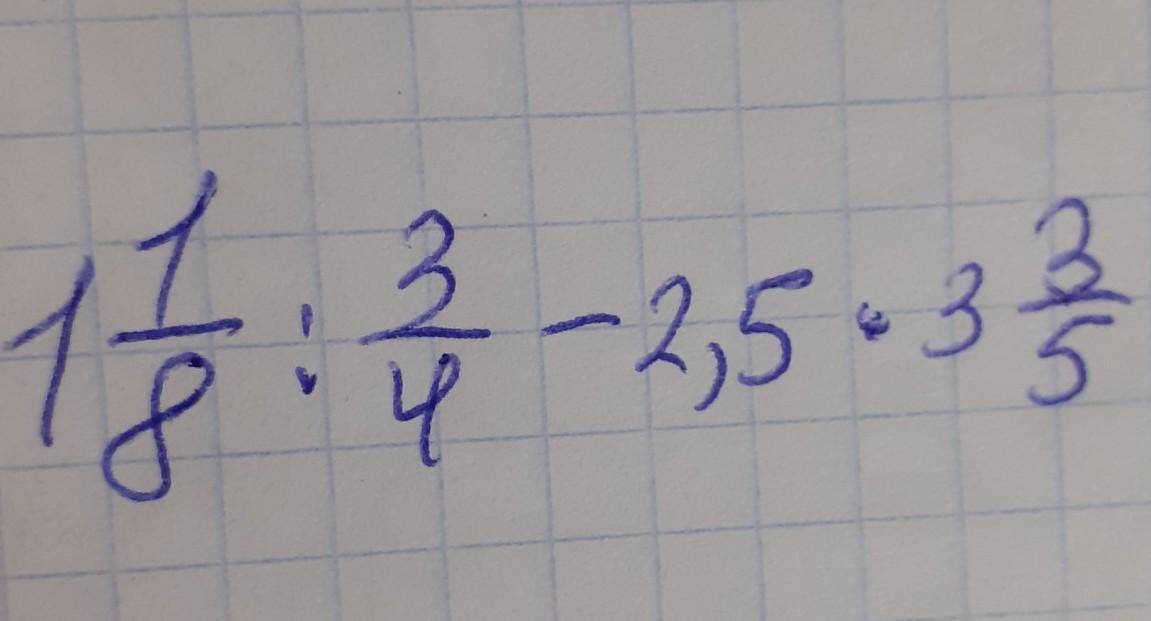 1 1/8 : 3/4 - 2,5 • 3 3/5